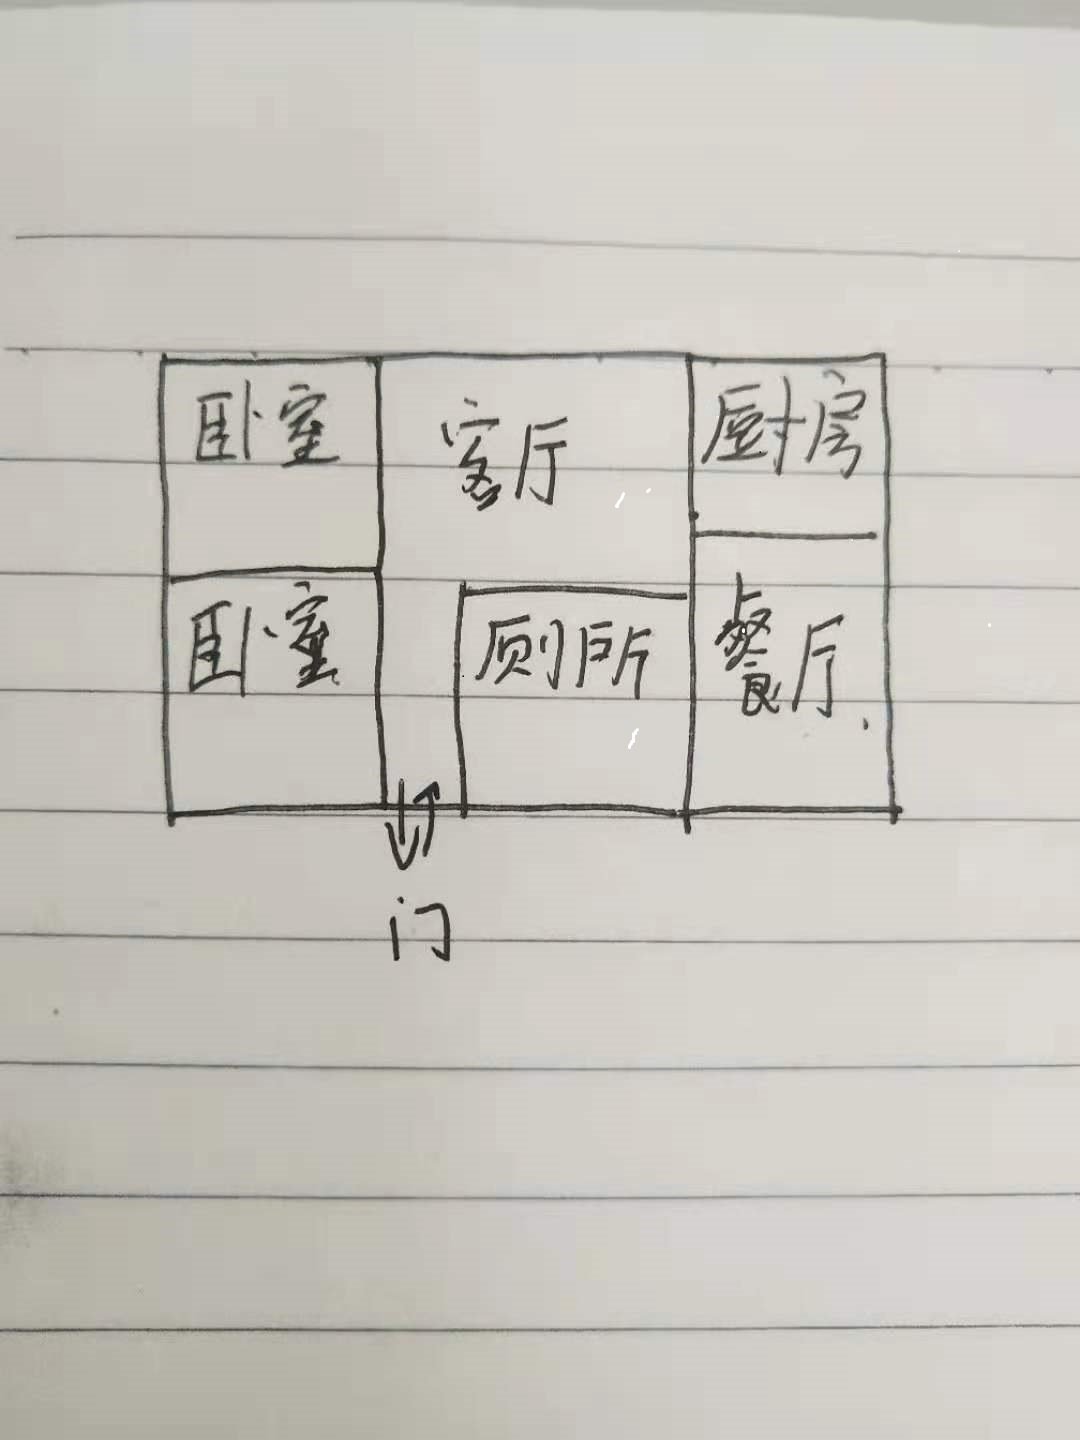 卧室
客厅
厨房
卧室
厕所
餐厅
门